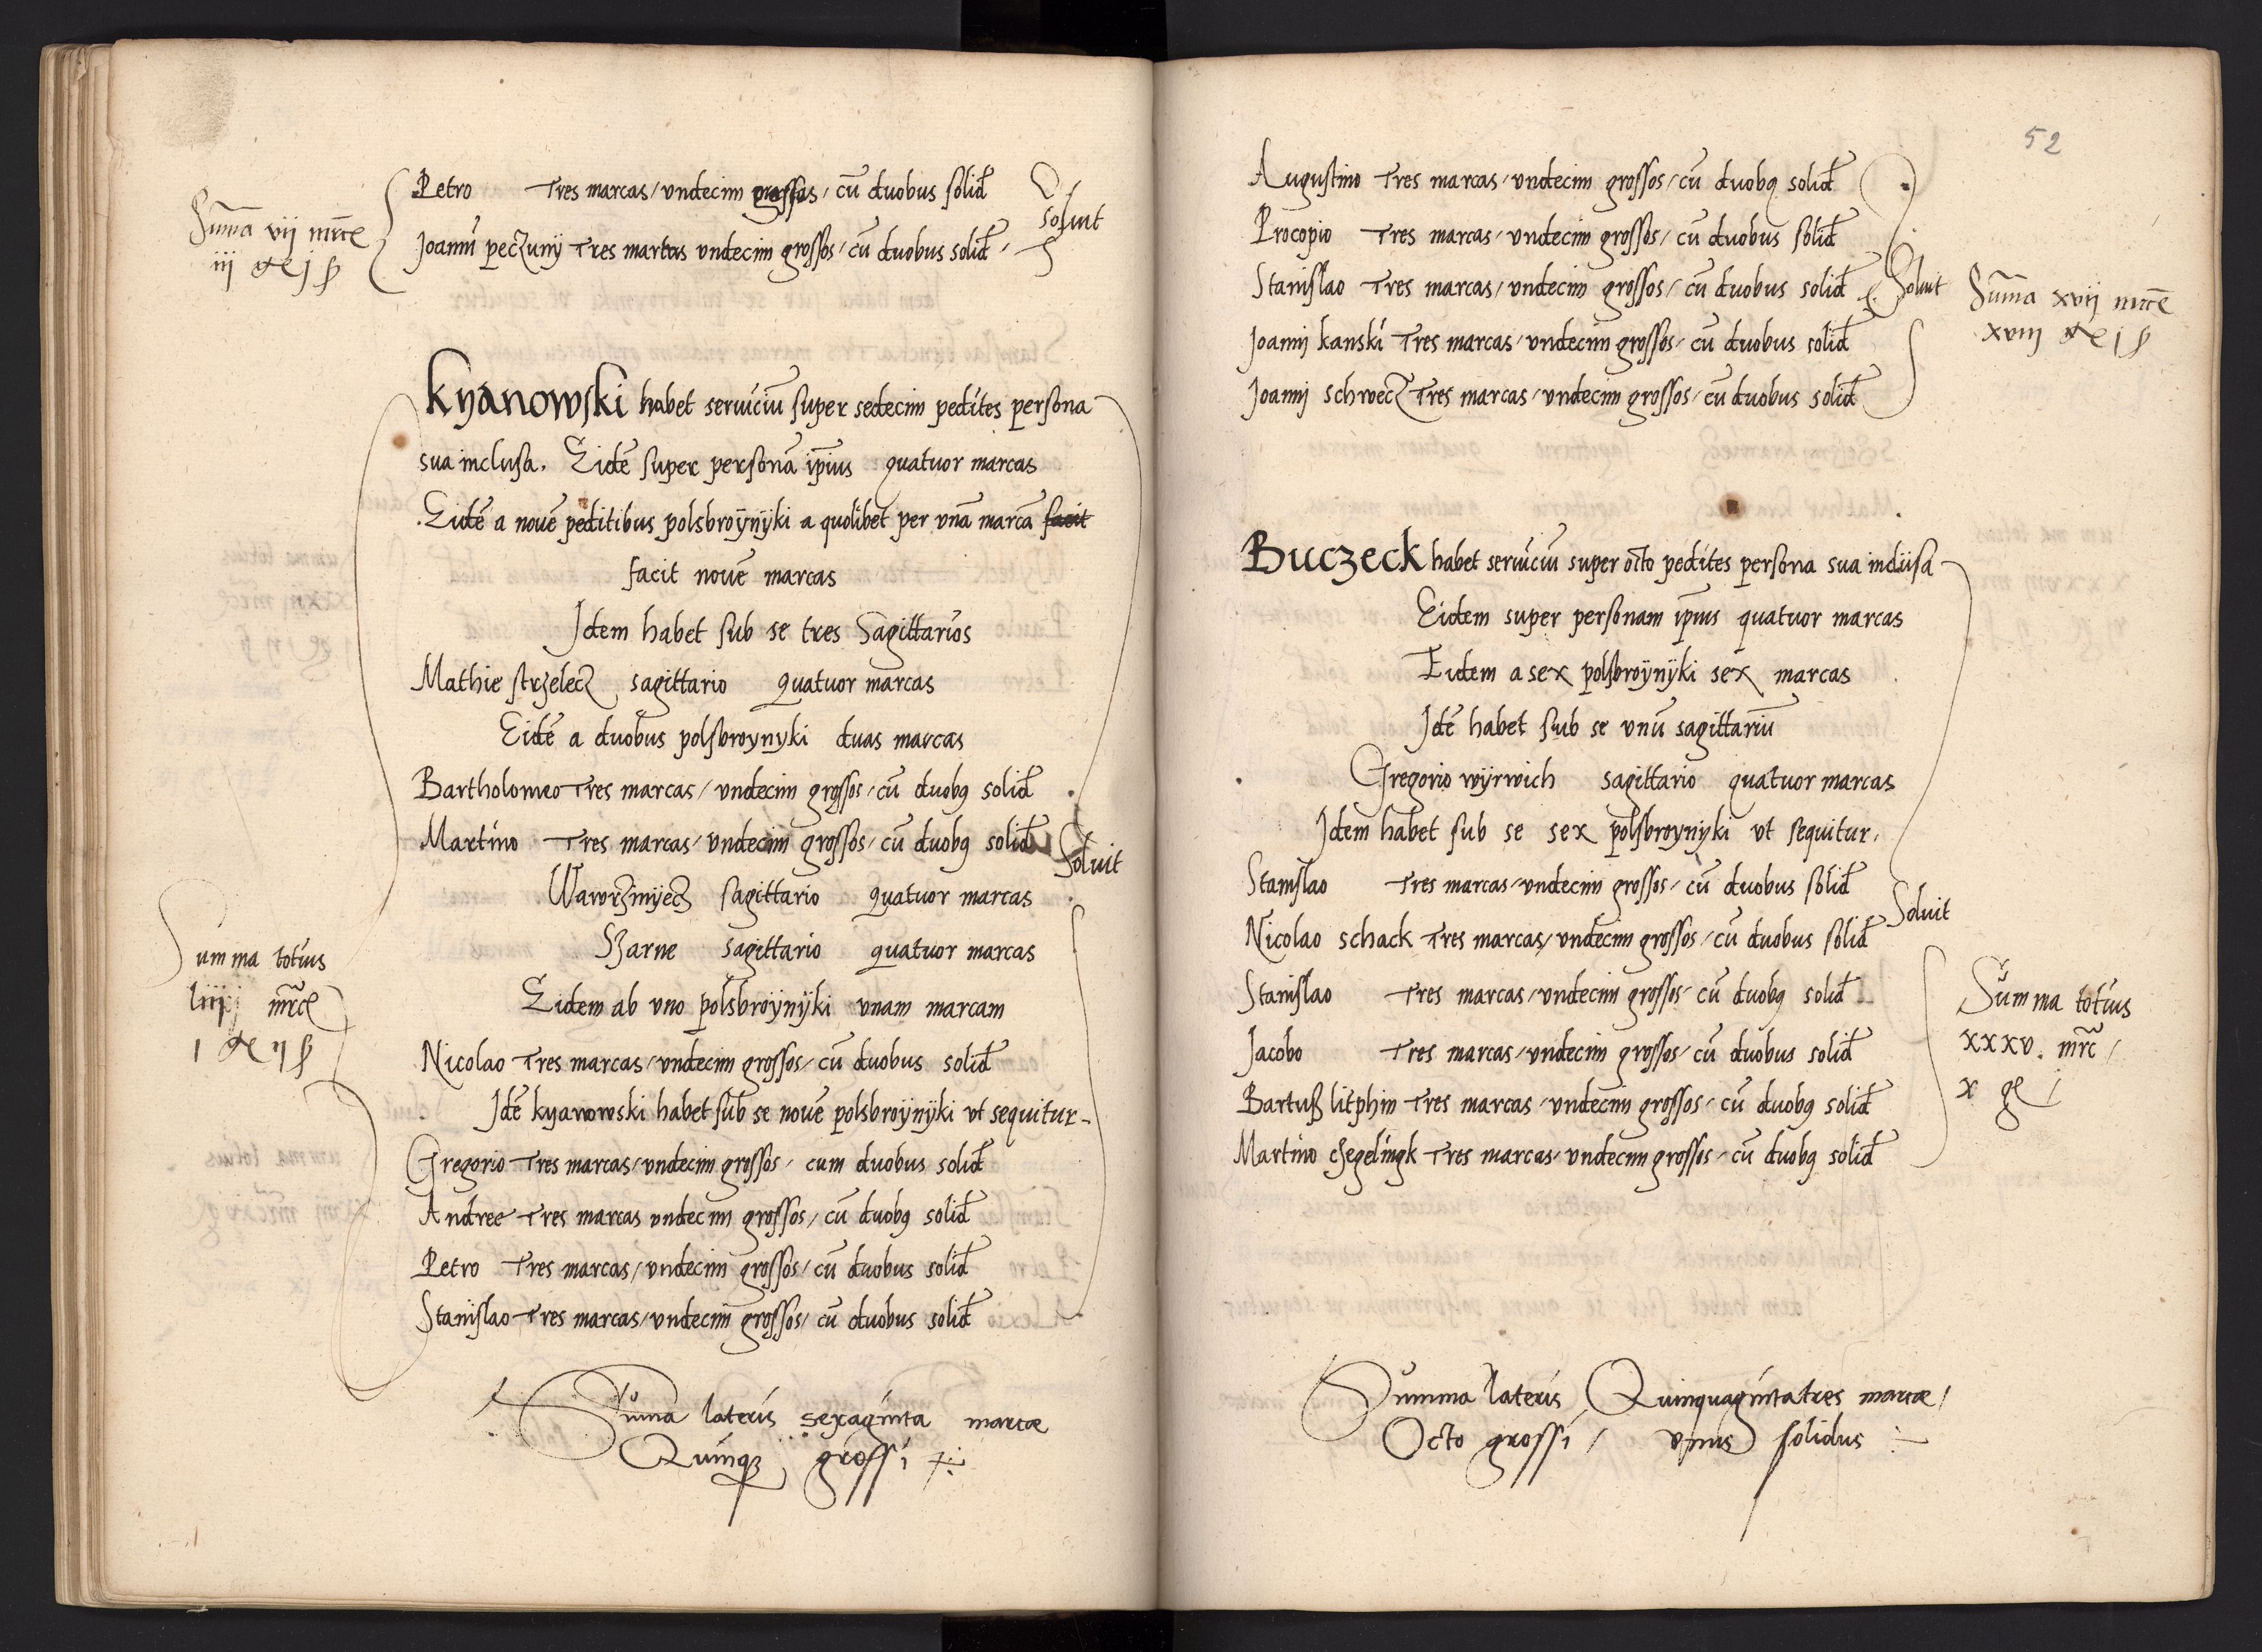 Petro tres marcas / undecim grossos / cū duobus solid
Joanni peczuny Tres marcas undecim grossos / cū duobus solid /
soluit
Sūma vij mrce
iij gͤ j ß
Kyanowski habet seruiciū super sedecim pedites persona
sua inclusa. Eidē super personā ip̄ius quatuor marcas
Eidē a nouē peditibus polsbroÿnÿki a quolibet per vnā marcā facit
facit nouē marcas
Idem habet sub se tres Sagittarios
Mathie strzelecz sagittario quatuor marcas
Eidē a duobus polsbroynyki duas marcas
Bartholomeo Tres marcas / vndecim grossos / cū duobꝰ solid
Martino Tres marcas / vndecim grossos / cū duobꝰ solid
Soluit
Wawrzinÿecz sagittario quatuor marcas
Szarne sagittario quatuor marcas
Eidem ab vno polsbroÿnÿki vnam marcam
Nicolao Tres marcas / vndecim grossos / cū duobus solid
Idē kyanowski habet sub se nouē polsbroÿnÿki vt sequitur
Gregorio Tres marcas / vndecim grossos / cum duobus solid
Andree Tres marcas vndecim grossos / cū duobꝰ solid
Petro Tres marcas / vndecim grossos / cū duobus solid
Stanislao Tres marcas / vndecim grossos / cū duobus solid
Summa totius
mrce
j gͤ ij ß
Sūma lateris sexaginta marcæ
Quinqꝫ grossi
52
Augustino Tres marcas / vndecim grossos / cū duobꝰ solid
Procopio Tres marcas / vndecim grossos / cū duobus solid
Stanislao Tres marcas / vndecim grossos / cū duobus solid
Joanni kanski Tres marcas / vndecim grossos / cū duobus solid
Joanni schwecz Tres marcas / vndecim grossos / cū duobus solid
Soluit
Sūma xvij mrce
xviij gͤ j ß
Buczeck habet seruiciū super octo pedites persona sua inclusa
Eidem super personam ip̄ius quatuor marcas
Eidem a sex polsbroÿnÿki sex marcas
Idē habet sub se vnū sagittariū
Gregorio wÿrwich sagittario quatuor marcas
Idem habet sub se sex polsbroynyki vt sequitur.
Stanislao Tres marcas / vndecim grossos / cū duobus solid
Nicolao schack Tres marcas / vndecim grossos / cū duobus solid
Soluit
Stanislao Tres marcas / vndecim grossos / cū duobꝰ solid
Jacobo Tres marcas / vndecim grossos / cū duobus solid
Bartuß litphin Tres marcas / vndecim grossos / cū duobꝰ solid
Martino czegelingk Tres marcas / vndecim grossos / cū duobꝰ solid
Summa totius
xxxv. mrc /
x gͤ /
Summa lateris Quinquaginta tres marcæ /
Octo grossi / vnus solidus